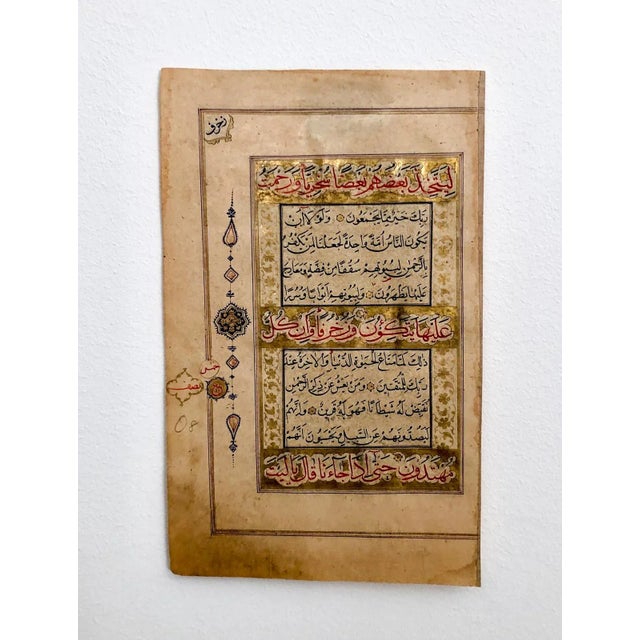 زخرف
ليتخذ بعضهم بعضا سخريا ورحمت
ربك خير مما يجمعون ولولا ان
يكون الناس امة واحدة لجعلنا لمن يكفر
بالرحمن لبيوتهم سقفا من فضة ومعارج
عليها يظهرون ولبيوتهم ابوابا وسررا
عليها يتكؤن وزخرفا وان كل
ذلك لما متاع الحيوة الدنيا والاخرة عند
ربك للمتقين ومن يعش عن ذكر الرحمن
نقيض له شيطانا فهو له قرين وانهم
ليصدونهم عن السبيل ويحسبون انهم
مهتدون حتى اذا جاءنا قال ياليت
خمس
نصف